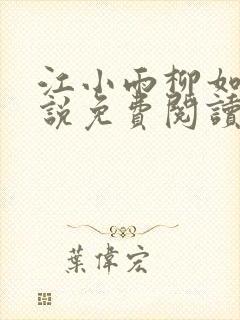 江小雨柳如
說免費閱讀
葉偉宏